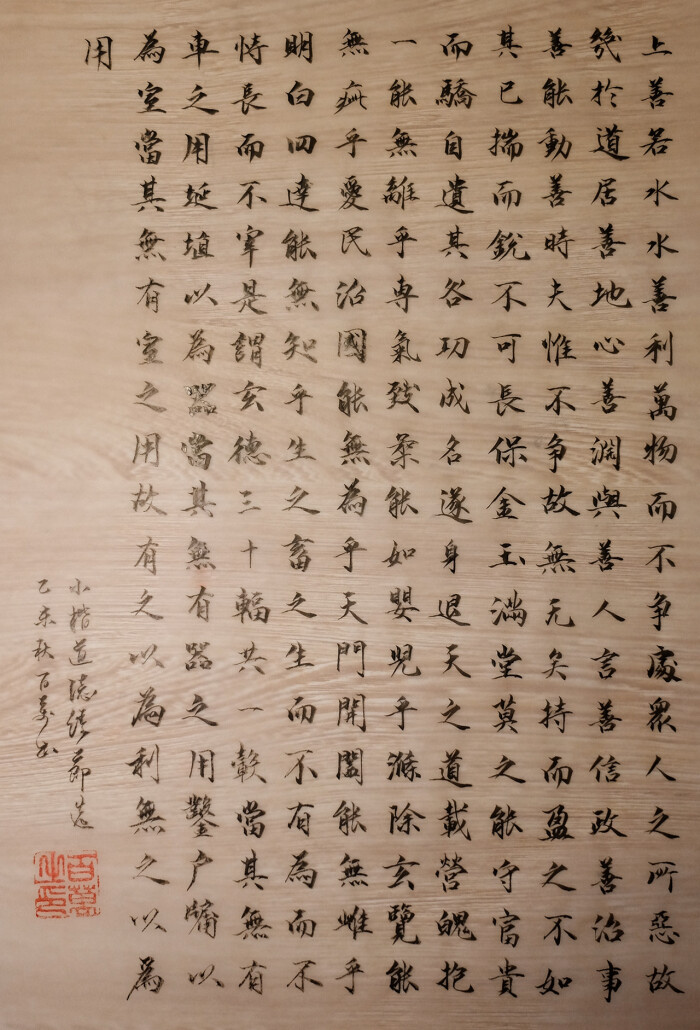 上善若水水善利萬物而不争處衆人之所惡故
幾於道居善地心善淵與善人言善信政善治事
善能動善時夫惟不争故無无矣持而盈之不如
其已揣而銳不可長保金玉滿堂莫之能守富貴
而驕自遺其各功成名遂身退天之道載營魄抱
一能無離乎専氣致柔能如嬰兒乎滌除玄覽能
無疵乎愛民治國能無為乎天門開闔能無雌乎
明白四達能無知乎生之畜之生而不有為而不
恃長而不宰是謂玄德三十輻共一轂當其無有
車之用延埴以為器當其無有器之用鑿户牖以
為室當其無有室之用故有之以為利無之以為
用
小楷道德經節选
乙未秋百萬书
百萬之印